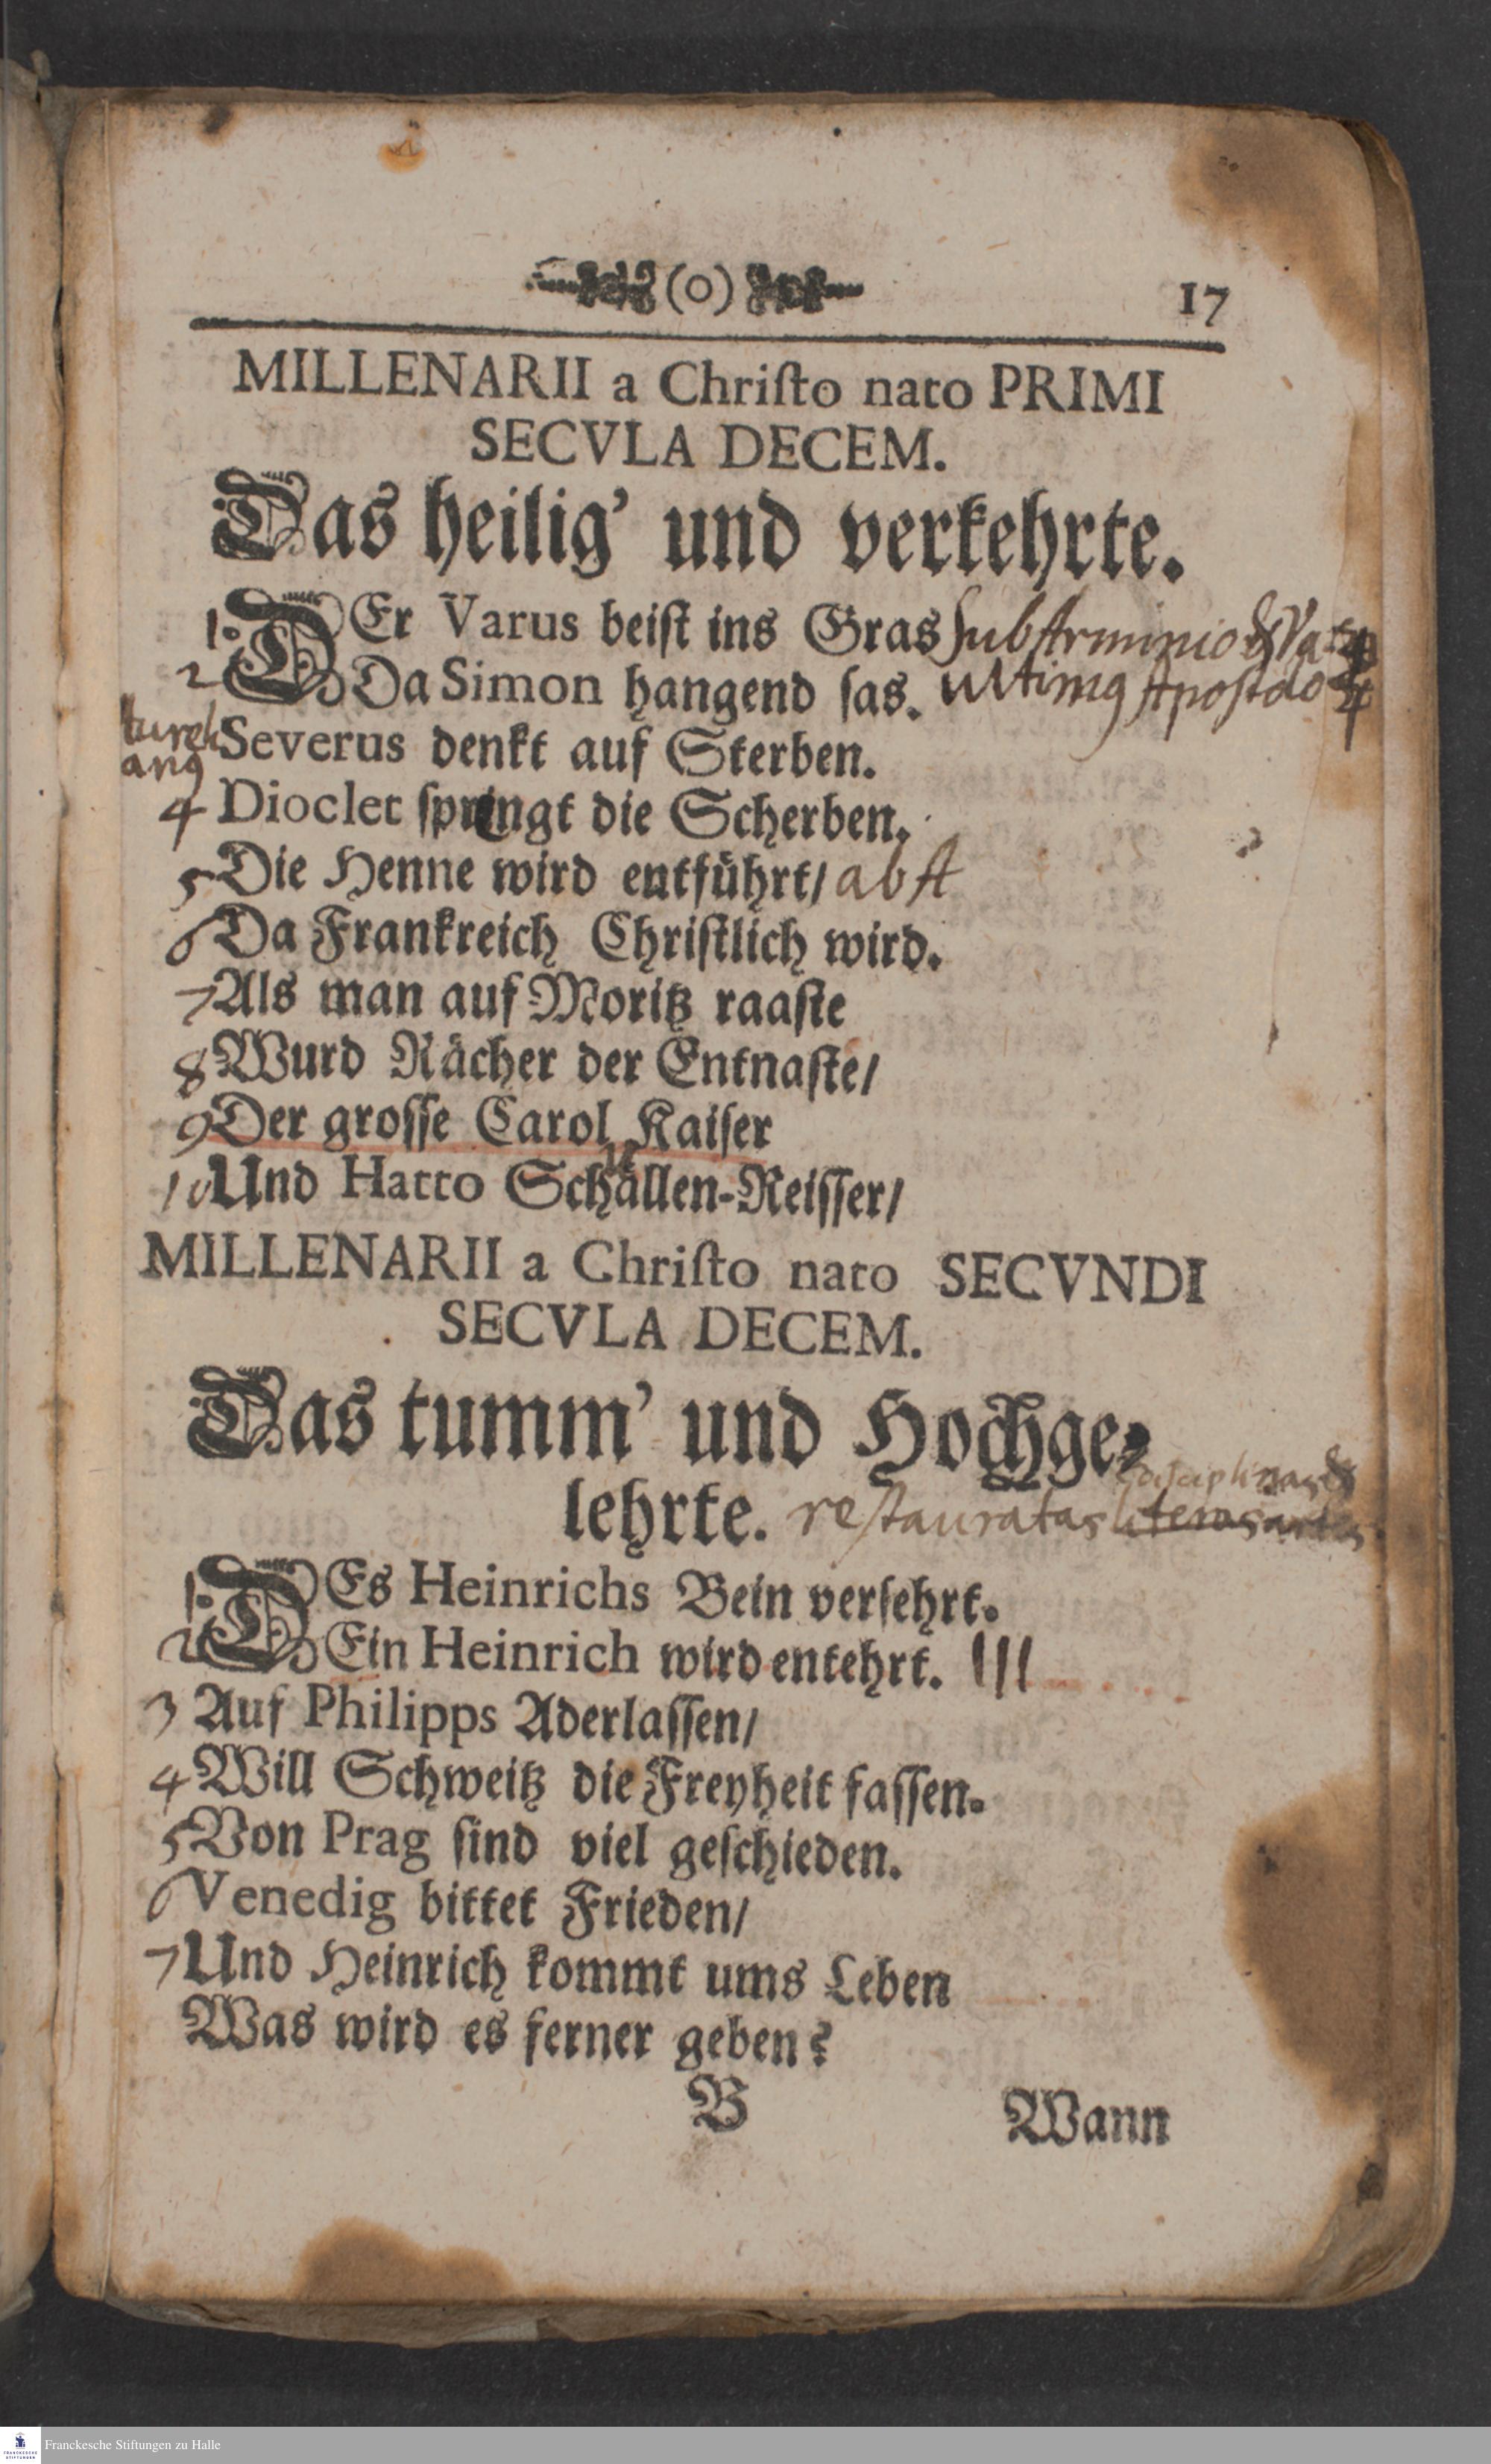 (o) 17
MILLENARII a Chriſto nato PRIMI
SECVLA DECEM.
Das heilig' und verkehrte.
1. DEr Varus beiſt ins Gras ſub Arminio &
2 Da Simon hangend ſas. ultimq Apostolo
Severus denkt auf Sterben.
4 Dioclet ſpringt die Scherben.
5 Die Henne wird entführt/ ab A
6 Da Frankreich Chriſtlich wird.
7 Als man auf Moritz raaſte
8 Wurd Rächer der Entnaſte/
9 Der groſſe Carol Kaiſer
10 Und Hatto Schällen-Reiſſer/
MILLENARII a Chriſto nato SECVNDI
SECVLA DECEM.
Das tumm' und Hochge-
lehrte. restauratas disciplinas &
1. DEs Heinrichs Bein verſehrt.
2 Ein Heinrich wird entehrt. III
3 Auf Philipps Aderlaſſen/
4 Will Schweitz die Freyheit faſſen.
5 Von Prag ſind viel geſchieden.
6 Venedig bittet Frieden/
7 Und Heinrich kommt ums Leben
Was wird es ferner geben?
B Wann
Franckesche Stiftungen zu Halle